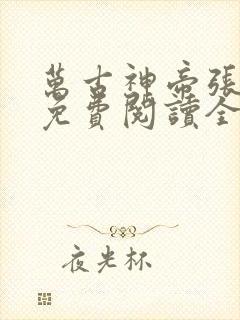 萬古神帝張
免費閱讀全
夜光杯